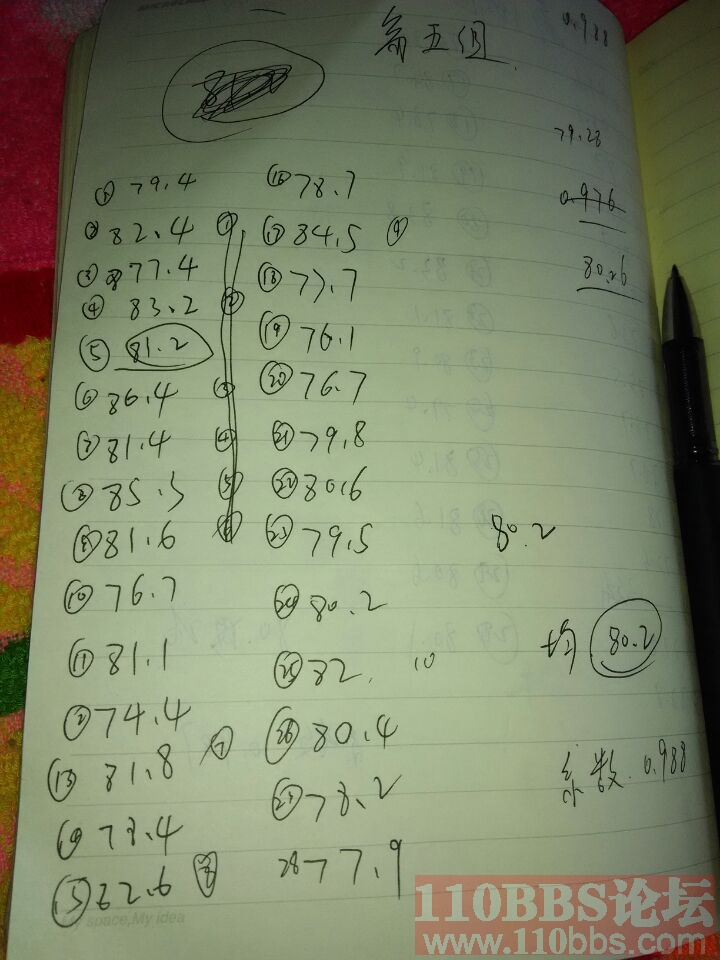 第五组
0.988
79.28
0.976
80.26
① 79.4
② 82.4 ①
③ 77.4
④ 83.2 ②
⑤ 81.2
⑥ 86.4 ③
⑦ 81.4 ④
⑧ 85.5 ⑤
⑨ 81.6 ⑥
⑩ 76.7
⑪ 81.1
⑫ 74.4
⑬ 81.8 ⑦
⑭ 78.4
⑮ 82.6 ⑧
⑯ 78.7
⑰ 84.5 ⑨
⑱ 77.7
⑲ 76.1
⑳ 76.7
㉑ 79.8
㉒ 80.6
㉓ 79.5
㉔ 80.2
㉕ 82. 10
㉖ 80.4
㉗ 78.2
28 77.9
80.2
均 80.2
系数 0.988
My space,My idea
110BBS论坛
www.110bbs.com